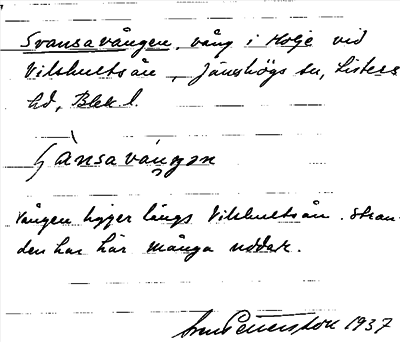 Svansavången, vång i Holje vid
Vilshultsån, Jämshögs sn, Listers
hd, Blek l.
vången ligger längs Vilshultsån. Stran-
den har här många uddar.
1937